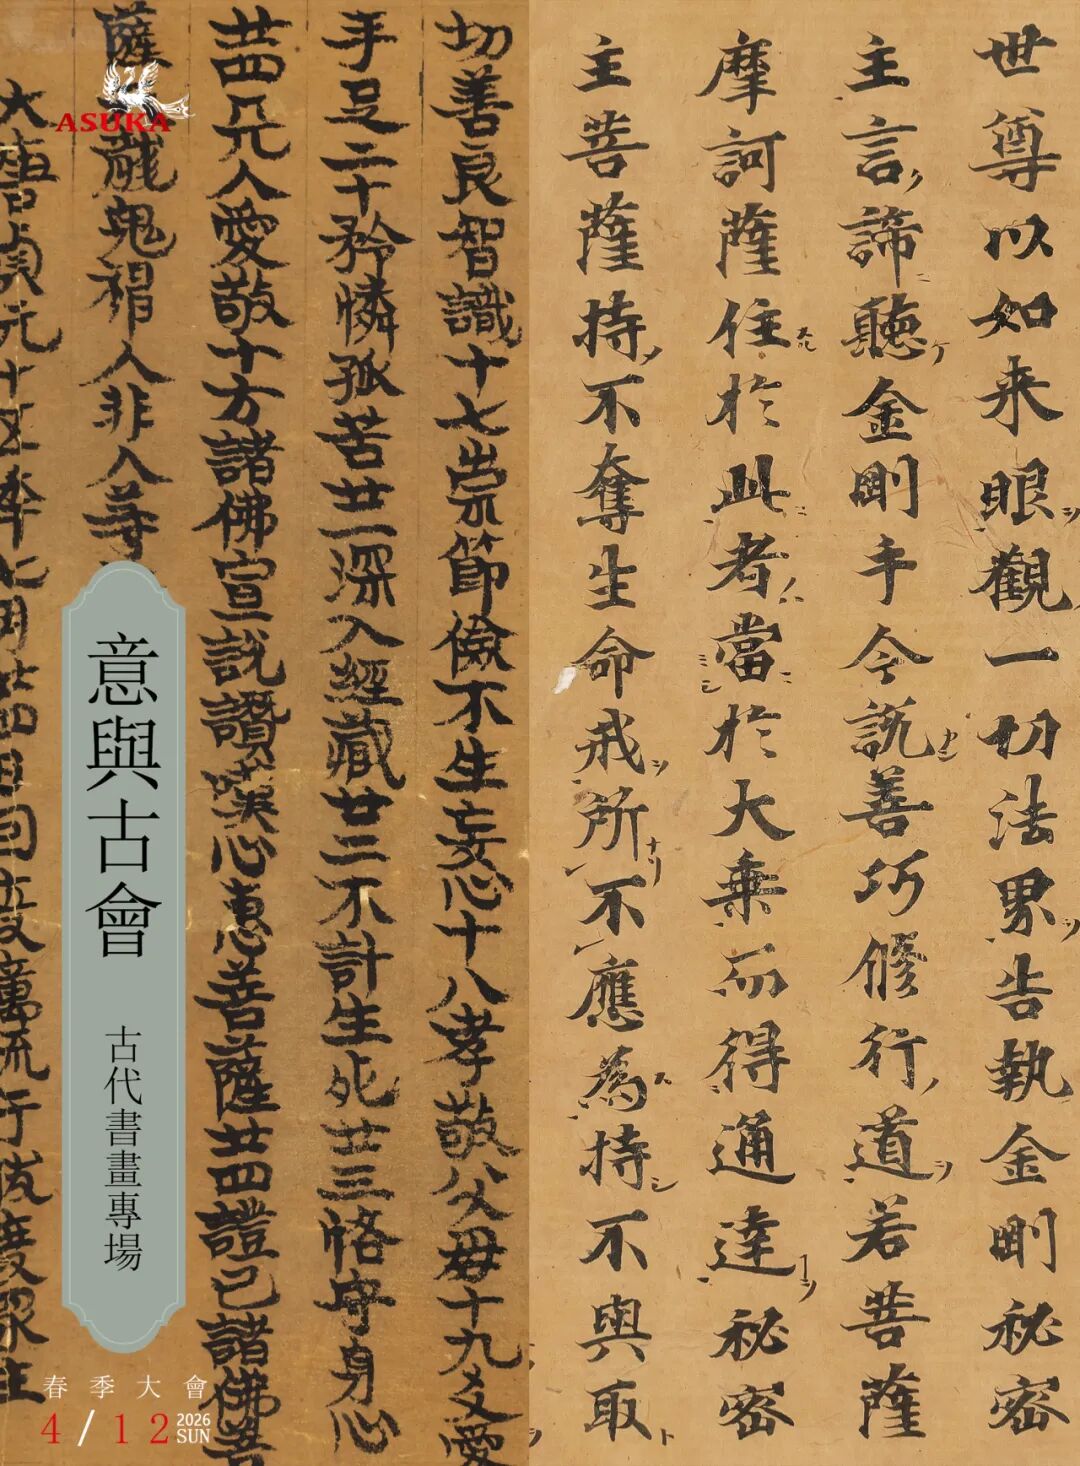 世尊以如来眼觀一切法界告執金剛秘密
主言諦聽金剛手今説善巧修行道若菩薩
摩訶薩住於此者當於大乗而得通達秘密
主菩薩持不奪生命戒所不應為持不與取
切善良智識十七崇節儉不生妄心十八孝敬父母十九爻愛
手足二十矜憐孤苦廿一深入經藏廿二不計生死廿三恪守身心
廿四凡人愛敬十方諸佛宣説讚嘆心惠菩薩廿四證已諸佛菩
薩龍鬼神人非人等
大唐貞元十五年七月廿四日
ASUKA
意與古會
古代書畫專場
春季大會
4/12 2026 SUN